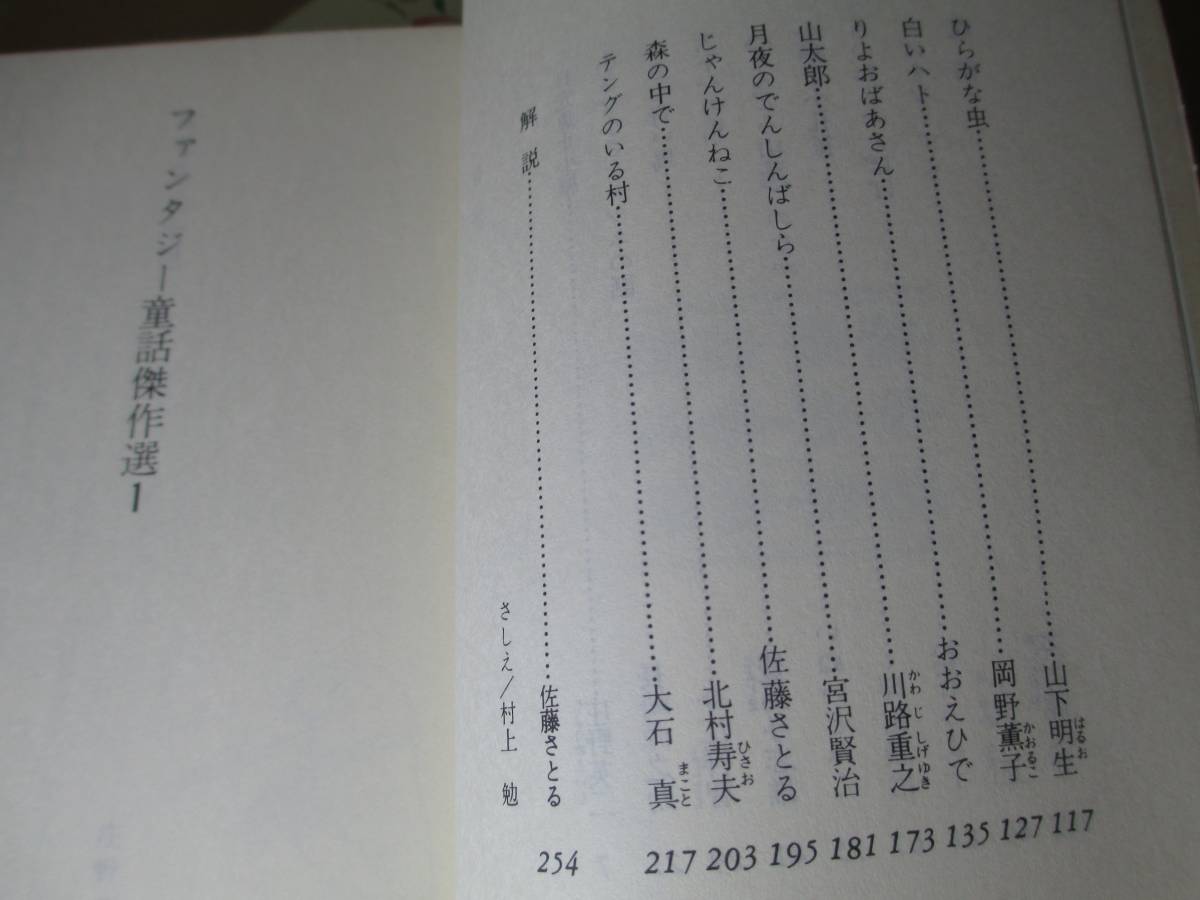 ひらがな虫……山下明生 117
はるお
白いハト……岡野薫子 127
かおるこ
りよおばあさん……おおえひで 135
山太郎……川路重之 173
かわじしげゆき
月夜のでんしんばしら……宮沢賢治 181
じゃんけんねこ……佐藤さとる 195
森の中で……北村寿夫 203
ひさお
テングのいる村……大石 真 217
まこと
解説……佐藤さとる 254
さしえ/村上 勉
ファンタジー童話傑作選1